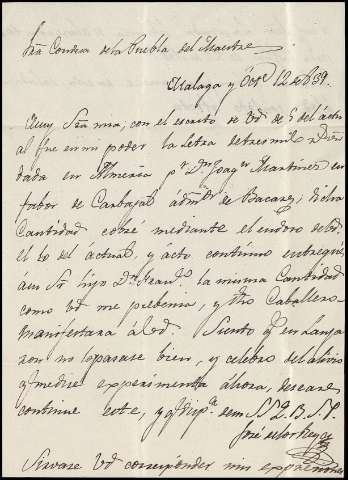 Sra Condesa de la Puebla del Maestre
Malaga y Oct.e 12 de 839.
Muy Sra mia, con el escrito de Vd. de 5 del actu
al fue en mi poder la letra de tres mil
dada en Almeria p.r D.n Joaq.n Martinez en
fabor de Carbajal adm.or de Bacares; dicha
Cantidad cobré mediante el endoso de Vd.
el 10 del actual, y acto continuo entregué
a su Sr hijo D.n Fran.co la misma Cantidad
como Vd me prebenia, y dho Caballero
manifestara á Vd. Siento q.e en Lanja
ron no lo pasase bien, y celebro del alivio
q.e me dice experimenta ahora, deseare
continue este, y q.e disp.a de su S S Q. B. S. P.
José de los Reyes
Sirvase Vd corresponder mis expresiones